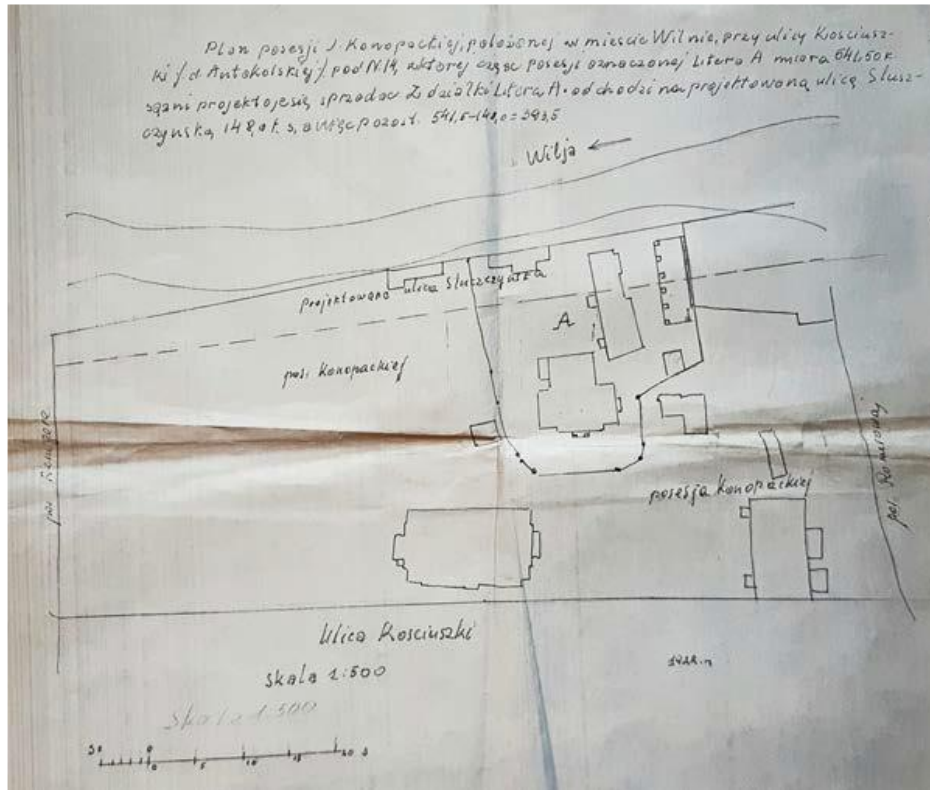 Plan posesji J. Konopackiej, położonej w mieście Wilnie, przy ulicy Kosciusz-
ki /d. Antokolskiej/ pod N.14, z ktorej część posesji oznaczonej Litera A miara 541,50 k.
sążni projektoje się sprzedac Z działki Litera A. odchodzi na projektowaną ulicę Slusz-
czynską 148,0 k. s, a więc pozost. 541,5-148,0 = 393,5
Wilja
projektowana ulica Sluszczynska
A
pos. Konopackiej
posesja Konopackiej
pos. Romerowej
Ulica Kosciuszki
skala 1:500
Skala 1:500
0
0 5 10 15 20 s